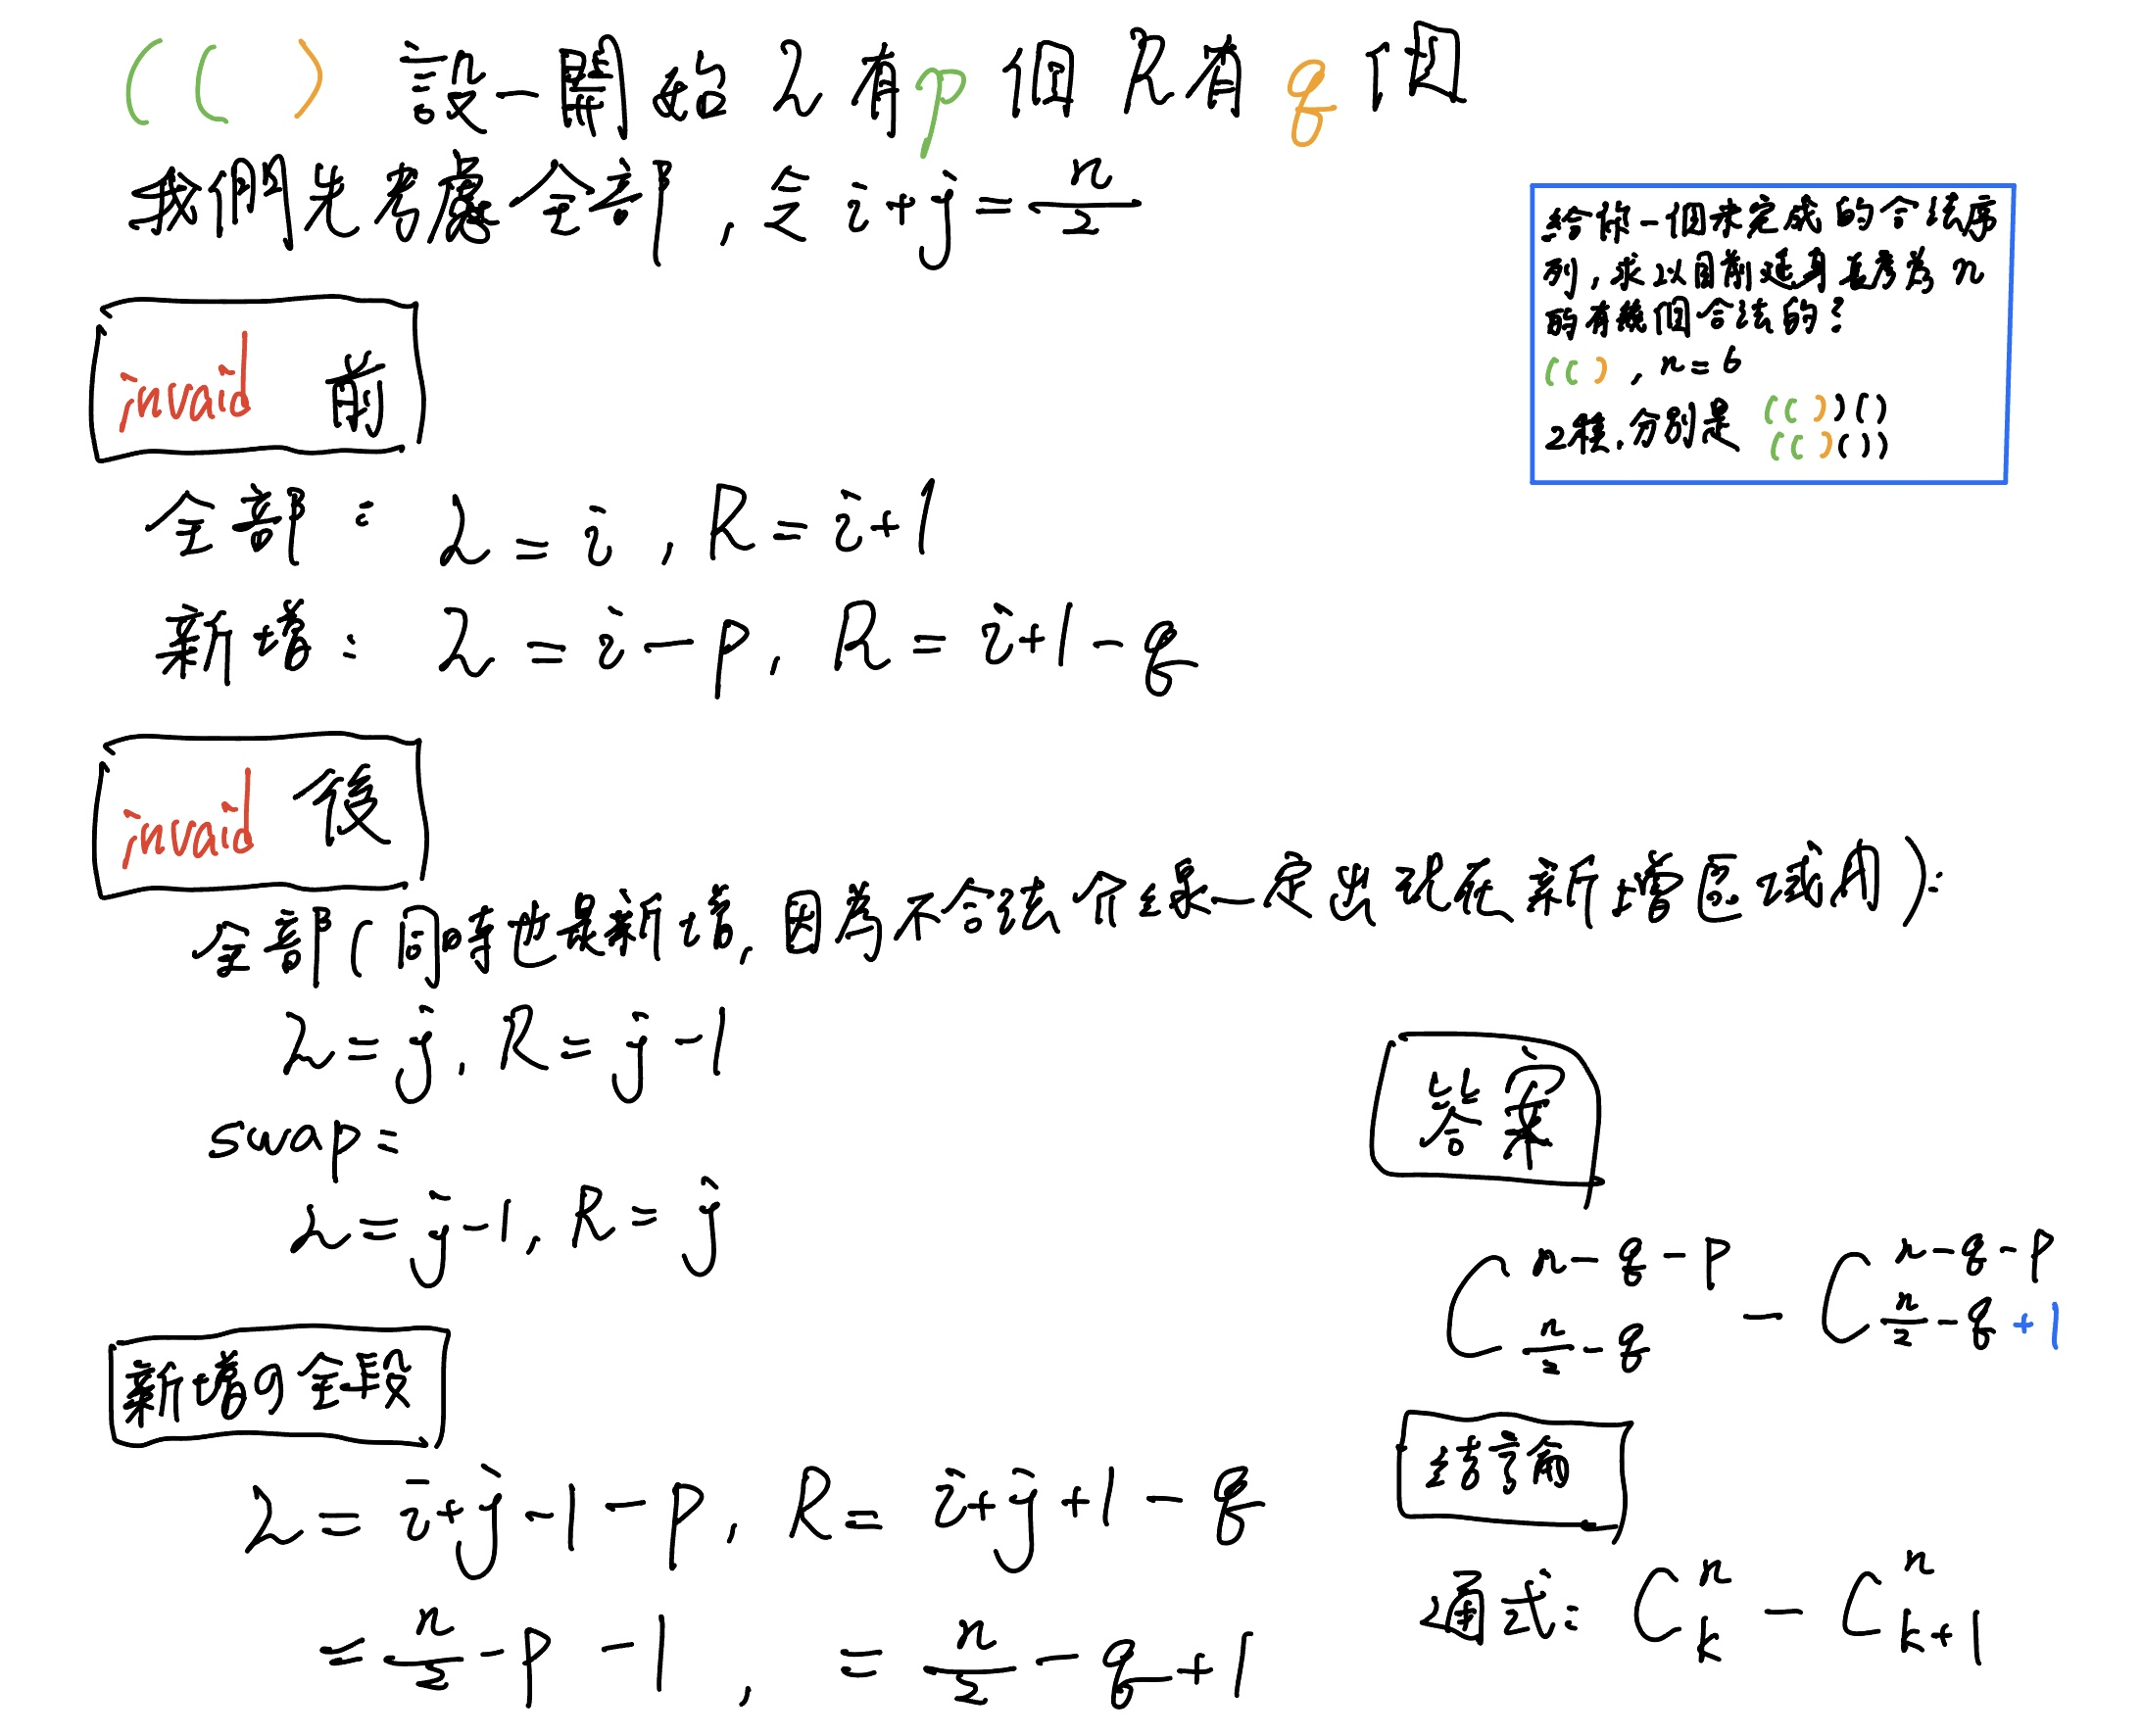 (( ) 設一開始 L 有 p 個 R 有 q 個
我們先考慮全部, 令 i+j = n/2
給你一個未完成的合法序
列, 求以目前延身長度為 n
的有幾個合法的?
(( ) , n=6
2種, 分別是 (( ) ) ( )
(( ) ( ) )
invaid 前
全部: L = i , R = i+1
新增: L = i-p, R = i+1-q
invaid 後
全部(同時也是新增, 因為不合法介線一定出現在新增區域內):
L = j, R = j-1
swap=
L = j-1, R = j
新增の全段
L = i+j-1-p, R = i+j+1-q
= n/2 - p - 1 , = n/2 - q + 1
答案
C^{n-q-p}_{n/2-q} - C^{n-q-p}_{n/2-q+1}
結論
通式: C^n_k - C^n_{k+1}